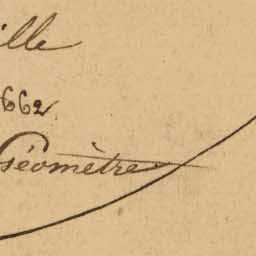 ille
1662
Géomètre